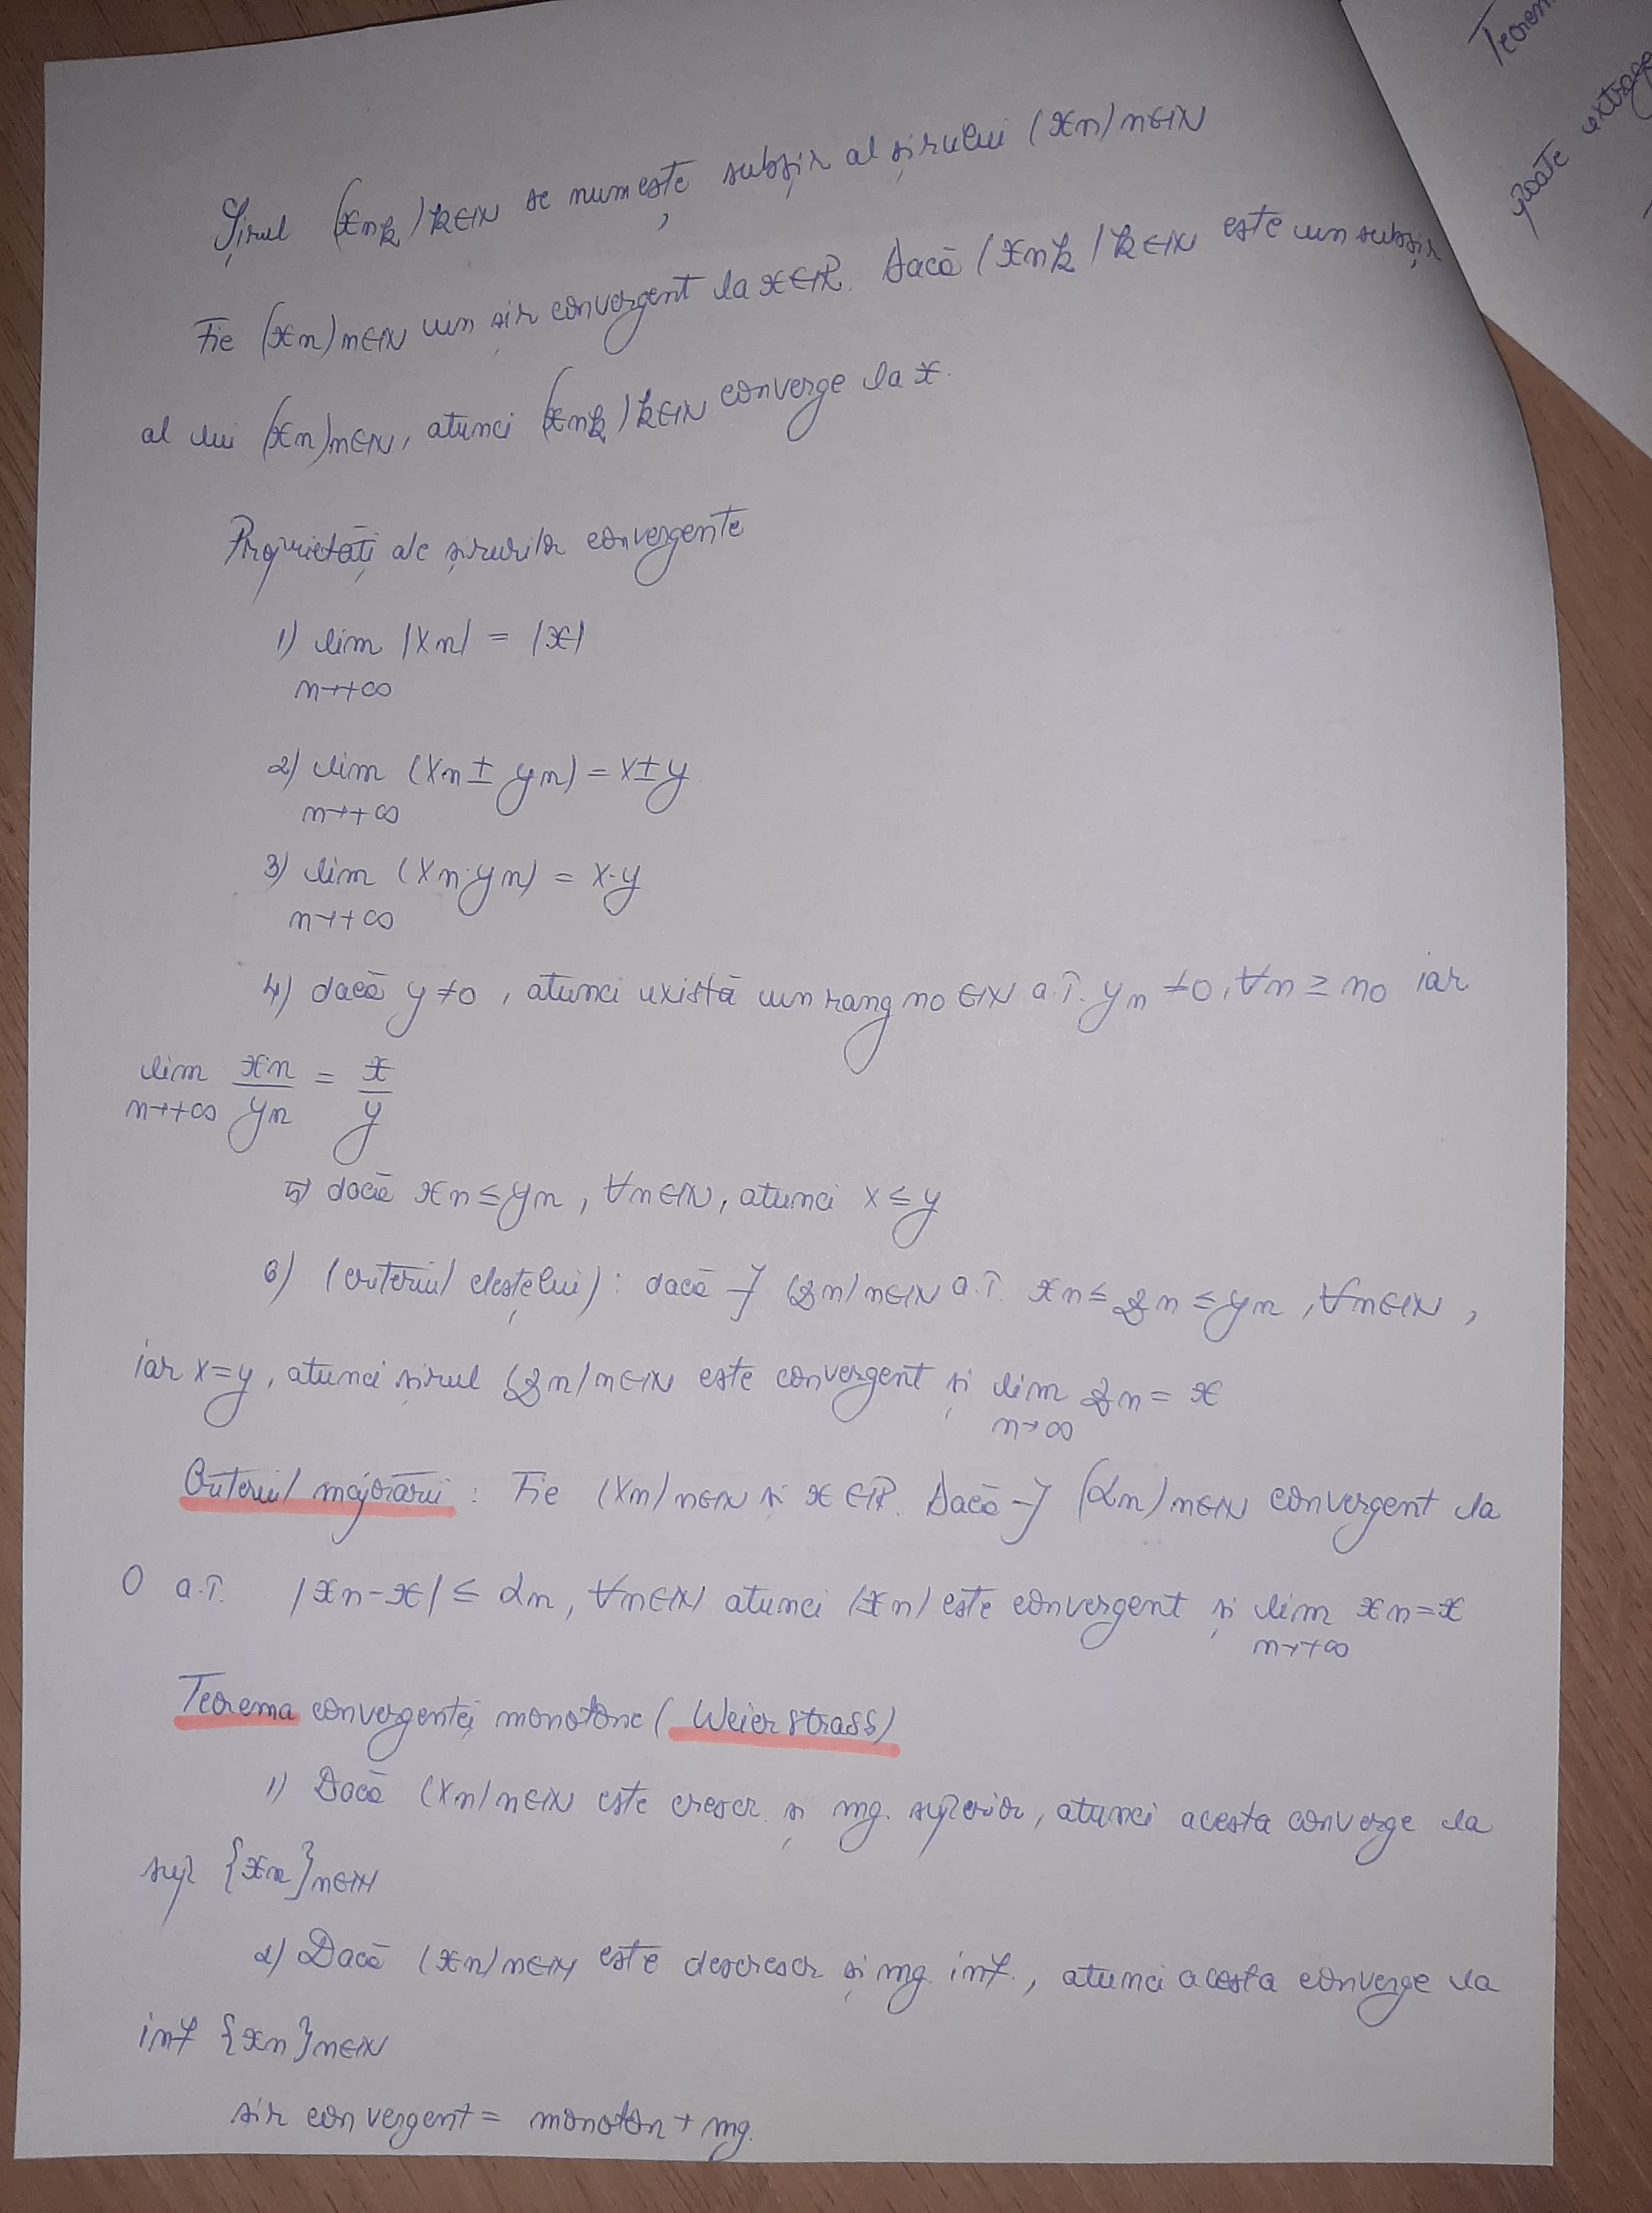 Șirul (xnk)k∈ℕ se numește subșir al șirului (xn)n∈ℕ
Fie (xn)n∈ℕ un șir convergent la x∈ℝ. Dacă (xnk)k∈ℕ este un subșir
al lui (xn)n∈ℕ, atunci (xnk)k∈ℕ converge la x.
Proprietăți ale șirurilor convergente
1) lim |xn| = |x|
n→+∞
2) lim (xn ± yn) = x±y
n→+∞
3) lim (xn·yn) = x·y
n→+∞
4) dacă y≠0, atunci există un rang n0∈ℕ a.î. yn≠0, ∀n≥n0 iar
lim xn/yn = x/y
n→+∞
5) dacă xn≤yn, ∀n∈ℕ, atunci x≤y
6) (criteriul cleștelui): dacă ∃ (zn)n∈ℕ a.î. xn≤zn≤yn, ∀n∈ℕ,
iar x=y, atunci șirul (zn)n∈ℕ este convergent și lim zn = x
n→∞
Criteriul majorării: Fie (xn)n∈ℕ și x∈ℝ. Dacă ∃ (αn)n∈ℕ convergent la
0 a.î. |xn-x| ≤ αn, ∀n∈ℕ atunci (xn) este convergent și lim xn=x
n→+∞
Teorema convergenței monotone (Weierstrass)
1) Dacă (xn)n∈ℕ este cresc. și mg. superior, atunci acesta converge la
sup {xn}n∈ℕ
2) Dacă (xn)n∈ℕ este descresc și mg. inf., atunci acesta converge la
inf {xn}n∈ℕ
șir convergent = monoton + mg.
Teorem
poate extrage